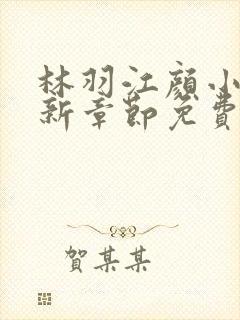 林羽江顏小
新章節免費
賀某某